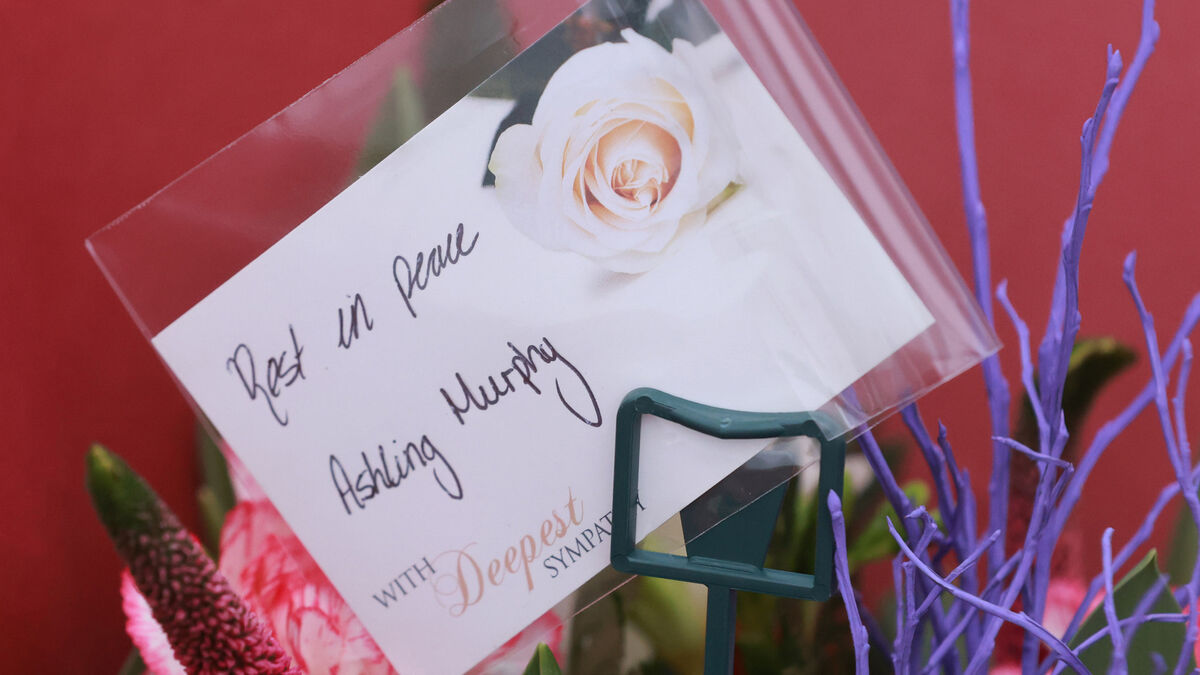 Rest in peace
Ashling Murphy
WITH Deepest SYMPATHY